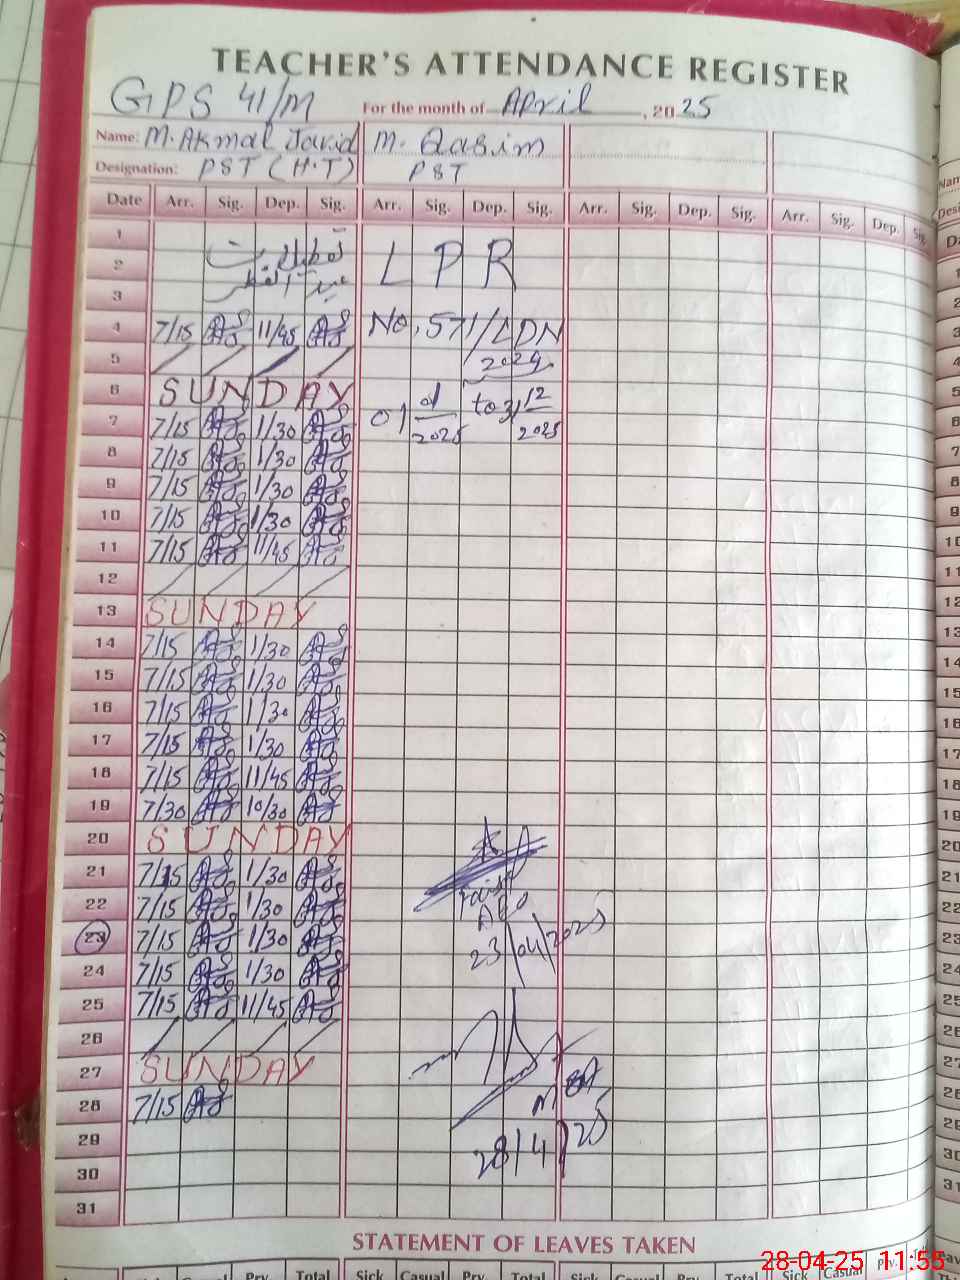 TEACHER'S ATTENDANCE REGISTER
GPS 41/M For the month of April, 2025
Name: M. Akmal Javid M. Qasim
Designation: PST (H.T) PST
Date Arr. Sig. Dep. Sig. Arr. Sig. Dep. Sig. Arr. Sig. Dep. Sig. Arr. Sig. Dep. Sig.
1
2 تعطیلات L P R
3 عید الفطر
4 7/15 11/45 No. 571/LDN
5 2024
6 SUNDAY 01 01/2025 to 31 12/2025
7 7/15 1/30
8 7/15 1/30
9 7/15 1/30
10 7/15 1/30
11 7/15 11/45
12
13 SUNDAY
14 7/15 1/30
15 7/15 1/30
16 7/15 1/30
17 7/15 1/30
18 7/15 11/45
19 7/30 10/30
20 SUNDAY
21 7/15 1/30
22 7/15 1/30 AEO
23 7/15 1/30 23/04/2025
24 7/15 1/30
25 7/15 11/45
26
27 SUNDAY
28 7/15 MEA
29 28/4/25
30
31
STATEMENT OF LEAVES TAKEN
Prv. Total Sick Casual Prv. Total Sick Casual Prv. Total Sick Casual Prv.
28-04-25 11:55